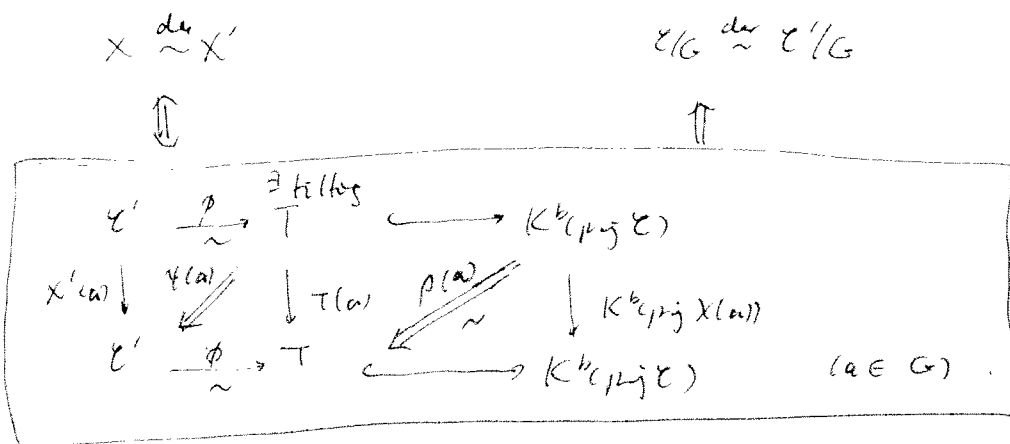 X der ∼ X'
𝒞/G der ∼ 𝒞'/G
⇕ ⇑
∃ tilting
𝒞' —ϕ→ ∼ T ↪ K^b(prj 𝒞)
X'(a) ↓ ψ(a) ⇙ ↓ T(a) ρ(a) ⇙ ∼ ↓ K^b(prj X(a))
𝒞' —ϕ→ ∼ T ↪ K^b(prj 𝒞) (a ∈ G).